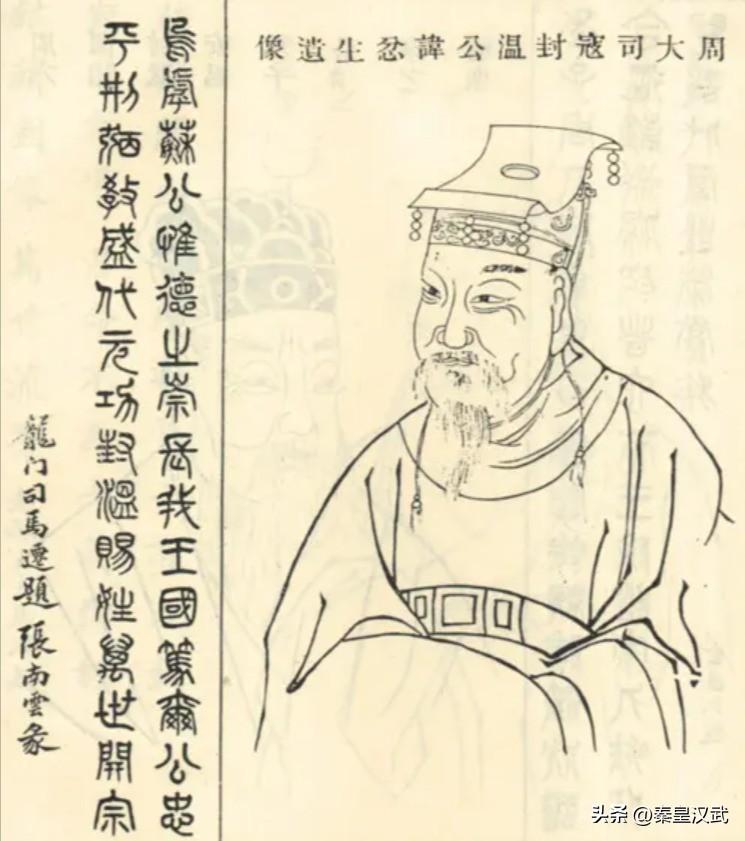 周大司寇封温公諱忿生遺像
烏虖蘇公惟德之崇長我王國篤爾公忠
平刑弼教盛代元功封溫賜姓萬世開宗
龍门司馬遷題 張南雲篆
头条 @秦皇汉武